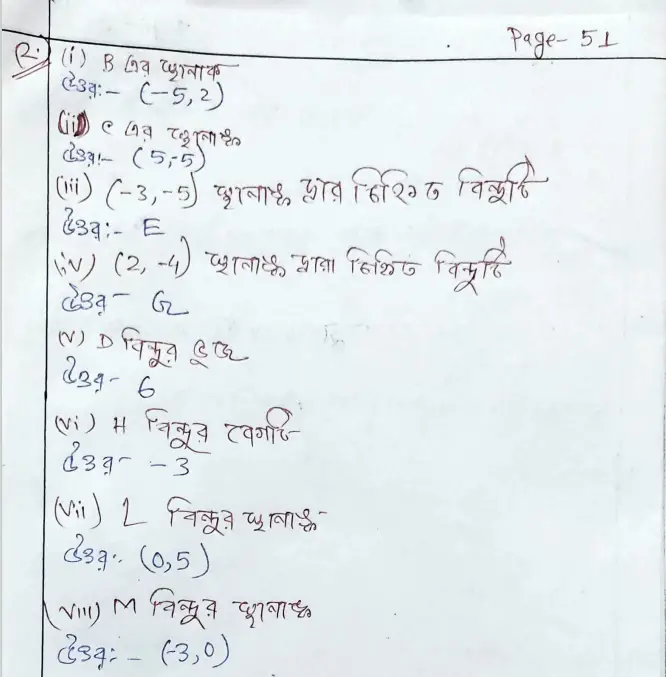 Page- 51
2. (i) B এর স্থানাংক
উত্তর:- (-5,2)
(ii) C এর স্থানাঙ্ক
উত্তর:- (5,-5)
(iii) (-3,-5) স্থানাঙ্ক দ্বারা চিহ্নিত বিন্দুটি
উত্তর:- E
(iv) (2,-4) স্থানাঙ্ক দ্বারা চিহ্নিত বিন্দুটি
উত্তর- G
(v) D বিন্দুর ভুজ
উত্তর- 6
(vi) H বিন্দুর কোটি
উত্তর- -3
(vii) L বিন্দুর স্থানাঙ্ক
উত্তর:- (0,5)
(viii) M বিন্দুর স্থানাঙ্ক
উত্তর:- (-3,0)